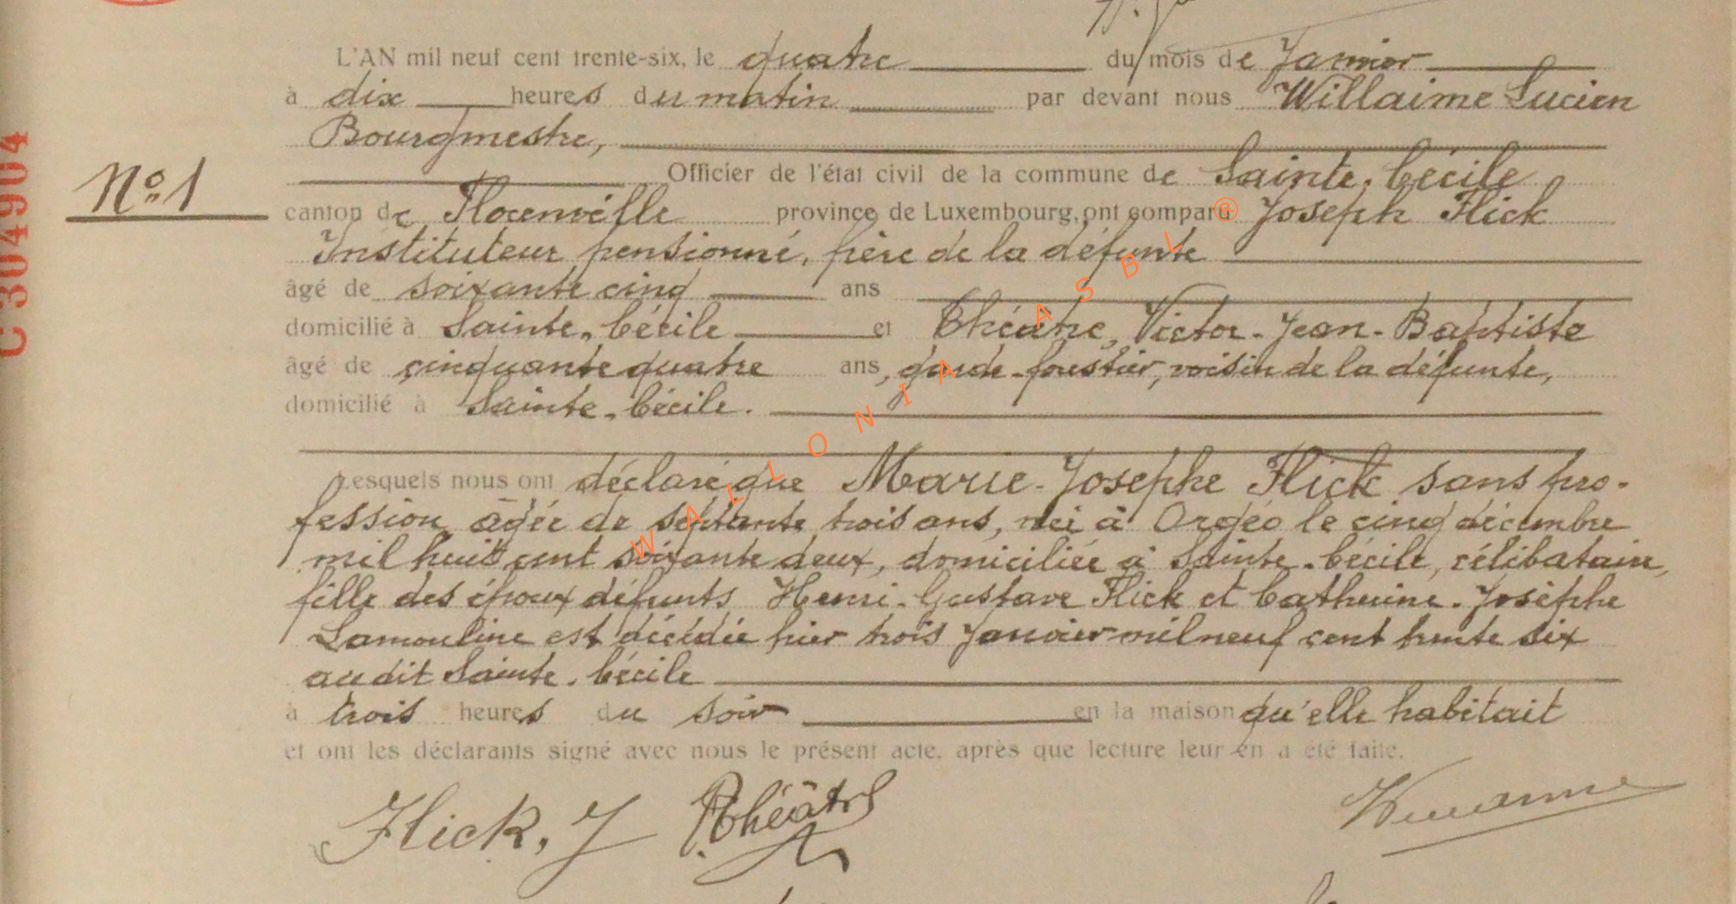 L'AN mil neuf cent trente-six, le quatre du mois de Janvier
à dix heures du matin par devant nous Willaime Lucien
Bourgmestre,
Officier de l'état civil de la commune de Sainte-Cécile
N° 1
canton de Florenville province de Luxembourg, ont comparu Joseph Flick
Instituteur pensionné, frère de la défunte
âgé de soixante cinq ans
domicilié à Sainte-Cécile et Théâtre, Victor-Jean-Baptiste
âgé de cinquante quatre ans, garde-forestier, voisin de la défunte,
domicilié à Sainte-Cécile.
Lesquels nous ont déclaré que Marie-Josephe Flick sans pro-
fession âgée de septante trois ans, née à Orgéo le cinq décembre
mil huit cent soixante deux, domiciliée à Sainte-Cécile, célibataire,
fille des époux défunts Henri-Gustave Flick et Catherine-Josèphe
Lamouline est décédée hier trois Janvier mil neuf cent trente six
au dit Sainte-Cécile
à trois heures du soir en la maison qu'elle habitait
et ont les déclarants signé avec nous le présent acte, après que lecture leur en a été faite.
Flick, J Théâtre
C 304904
WALLONIA ASBL ©